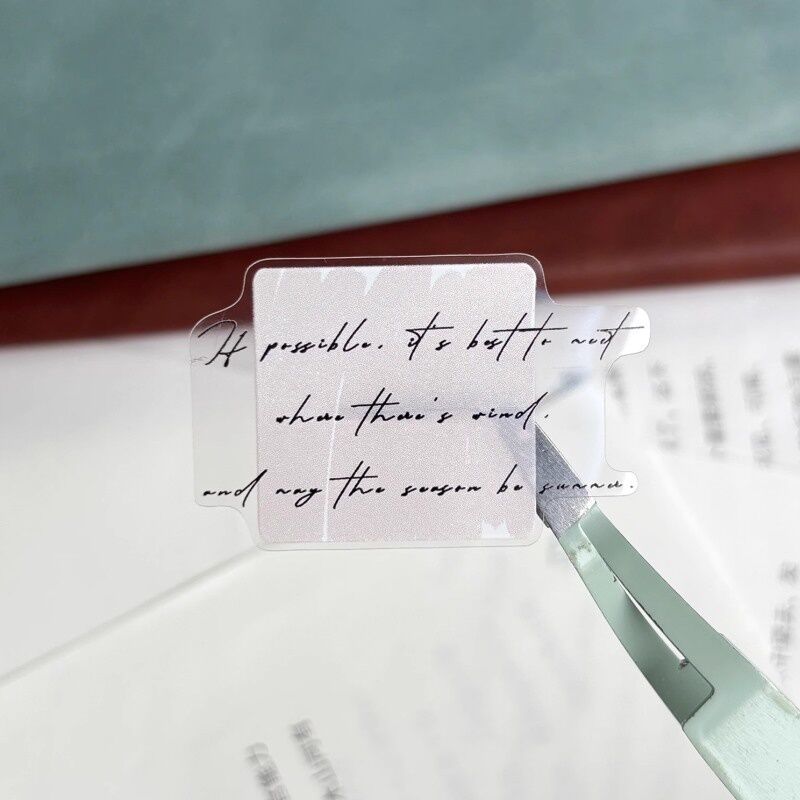 If possible, it's best to meet
where there's wind.
and may the season be summer.